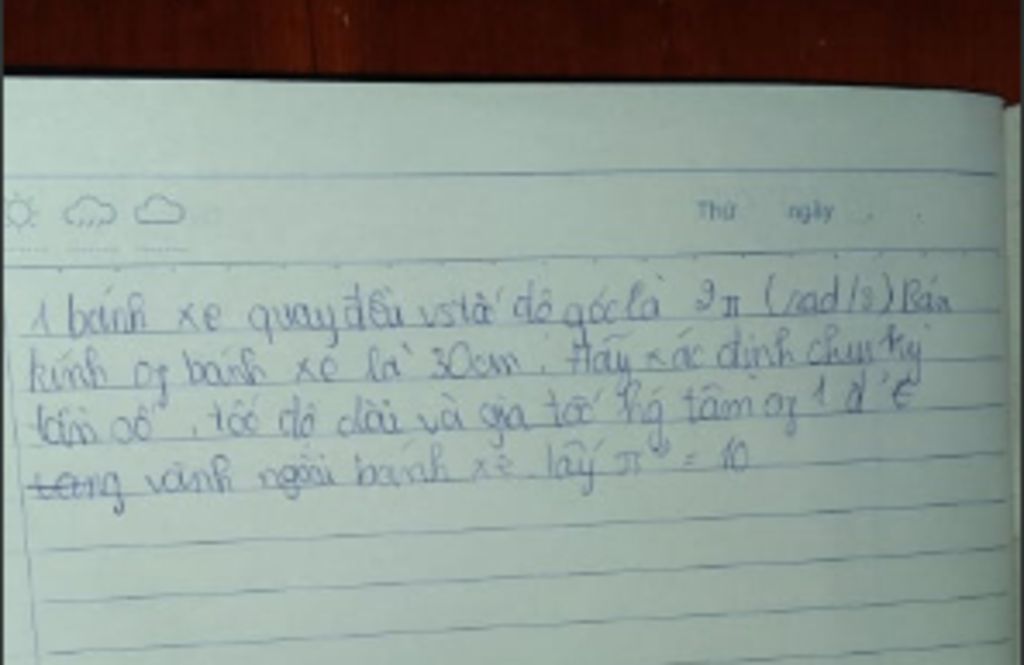 Thứ ngày
1 bánh xe quay đều vs tốc độ góc là 2π (rad/s) Bán
kính of bánh xe là 30cm. Hãy xác định chu kỳ
tần số, tốc độ dài và gia tốc hg tâm of 1 đ' E
vành ngoài bánh xe lấy π² = 10